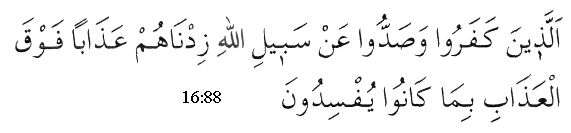 اَلَّذِينَ كَفَرُوا وَصَدُّوا عَنْ سَبِيلِ اللهِ زِدْنَاهُمْ عَذَاباً فَوْقَ
الْعَذَابِ بِمَا كَانُوا يُفْسِدُونَ 16:88